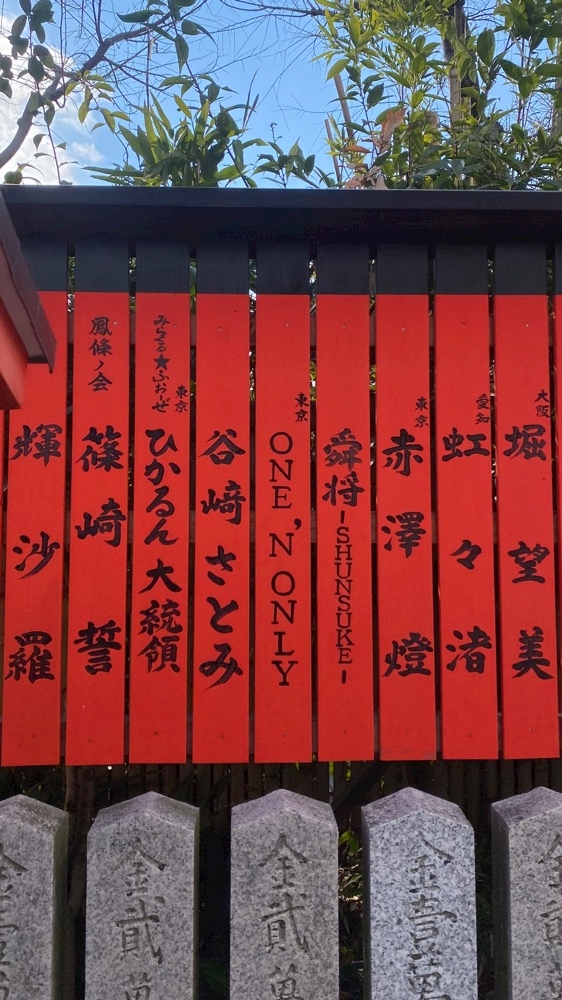 大阪
堀望美
愛知
虹々渚
東京
赤澤燈
舜将-SHUNSUKE-
東京
ONE'N ONLY
谷﨑さとみ
東京
みらくる★ふぉーぜ
ひかるん大統領
鳳條ノ会
篠崎誓
輝沙羅
金壹萬
金貳萬
金貳萬
金壹萬